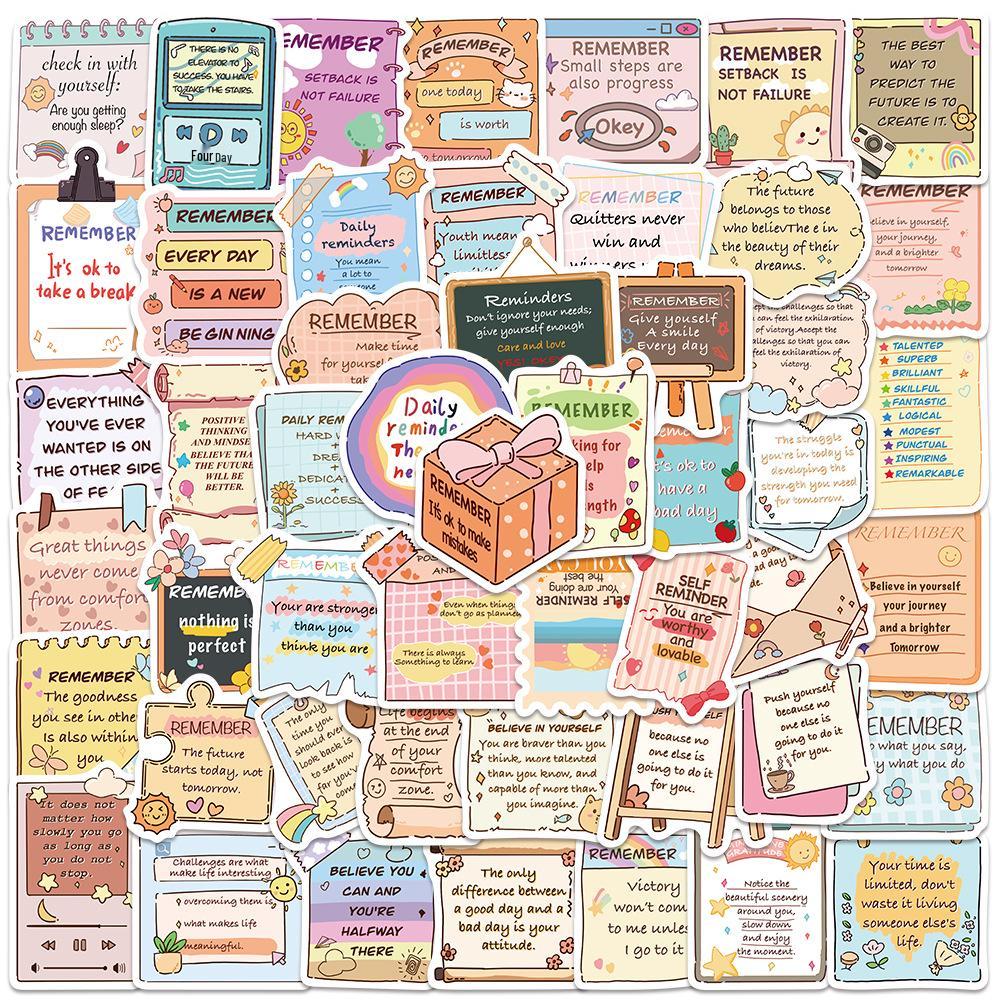 check in with
yourself:
Are you getting
enough sleep?
THERE IS NO
ELEVATOR TO
SUCCESS. YOU HAVE
TO TAKE THE STAIRS.
Four Day
REMEMBER
SETBACK IS
NOT FAILURE
REMEMBER
one today
is worth
tomorrow
REMEMBER
Small steps are
also progress
Okey
REMEMBER
SETBACK IS
NOT FAILURE
THE BEST
WAY TO
PREDICT THE
FUTURE IS TO
CREATE IT.
REMEMBER
It's ok to
take a break
REMEMBER
EVERY DAY
IS A NEW
BEGIN NING
Daily
reminders
You mean
a lot to
someone
REMEMBER
Youth mean
limitless
REMEMBER
Quitters never
win and
winners
The future
belongs to those
who believThe e in
the beauty of their
dreams.
REMEMBER
elieve in yourself,
your journey,
and a brighter
tomorrow
REMEMBER
Make time
for yourself
Reminders
Don't ignore your needs;
give yourself enough
Care and love
YES! OKEY
REMEMBER
Give yourself
A smile
Every day
challenges so that
can feel the exhilaration
of victory.Accept the
challenges so that you can
feel the exhilaration of
victory.
TALENTED
SUPERB
BRILLIANT
SKILLFUL
FANTASTIC
LOGICAL
MODEST
PUNCTUAL
INSPIRING
REMARKABLE
EVERYTHING
YOU'VE EVER
WANTED IS ON
THE OTHER SIDE
OF FE
POSITIVE
THINKING
AND MINDSE
BELIEVE THA
THE FUTURE
WILL BE
BETTER.
DAILY REM
HARD
DRE
+
DEDICAT
+
SUCCESS
Daily
reminde
The
ne
REMEMBER
It's ok to make
mistakes
REMEMBER
king for
elp
is
ength
t's ok to
have a
bad day
The struggle
you're in today is
developing the
strength you need
for tomorrow.
Great things
never come
from comfort
zones.
REMEMB
nothing is
perfect
REMEMBE
Your are stronger
than you
think you are
POS
AND
Even when things
don't go as planne
There is always
Something to learn
the best
SELF REMINDER
SELF
REMINDER
You are
worthy
and
lovable
a good
day
de.
REMEMBER
Believe in yourself
your journey
and a brighter
Tomorrow
REMEMBER
The goodness
you see in othe
Is also within
you
REMEMBER
The future
starts today, not
tomorrow.
The only
time you
should ever
look back is
to see how
far you'v
life begins
at the end
of your
comfort
zone.
BELIEVE IN YOURSELF
You are braver than you
think, more talented
than you know, and
capable of more than
you imagine.
because no
one else is
going to do it
for you.
Push yourself
because no
one else is
going to do it
for you.
EMEMBER
what you say,
y what you do
It does not
matter how
slowly you go
as long as
you do not
stop.
Challenges are what
make life interesting
overcoming them is
what makes life
meaningful.
BELIEVE YOU
CAN AND
YOU'RE
HALFWAY
THERE
The only
difference between
a good day and a
bad day is your
attitude.
REMEMBER
Victory
won't com
to me unles
I go to it
GRATITUDE
Notice the
beautiful scenery
around you,
slow down
and enjoy
the moment.
Your time is
limited, don't
waste it living
someone else's
life.